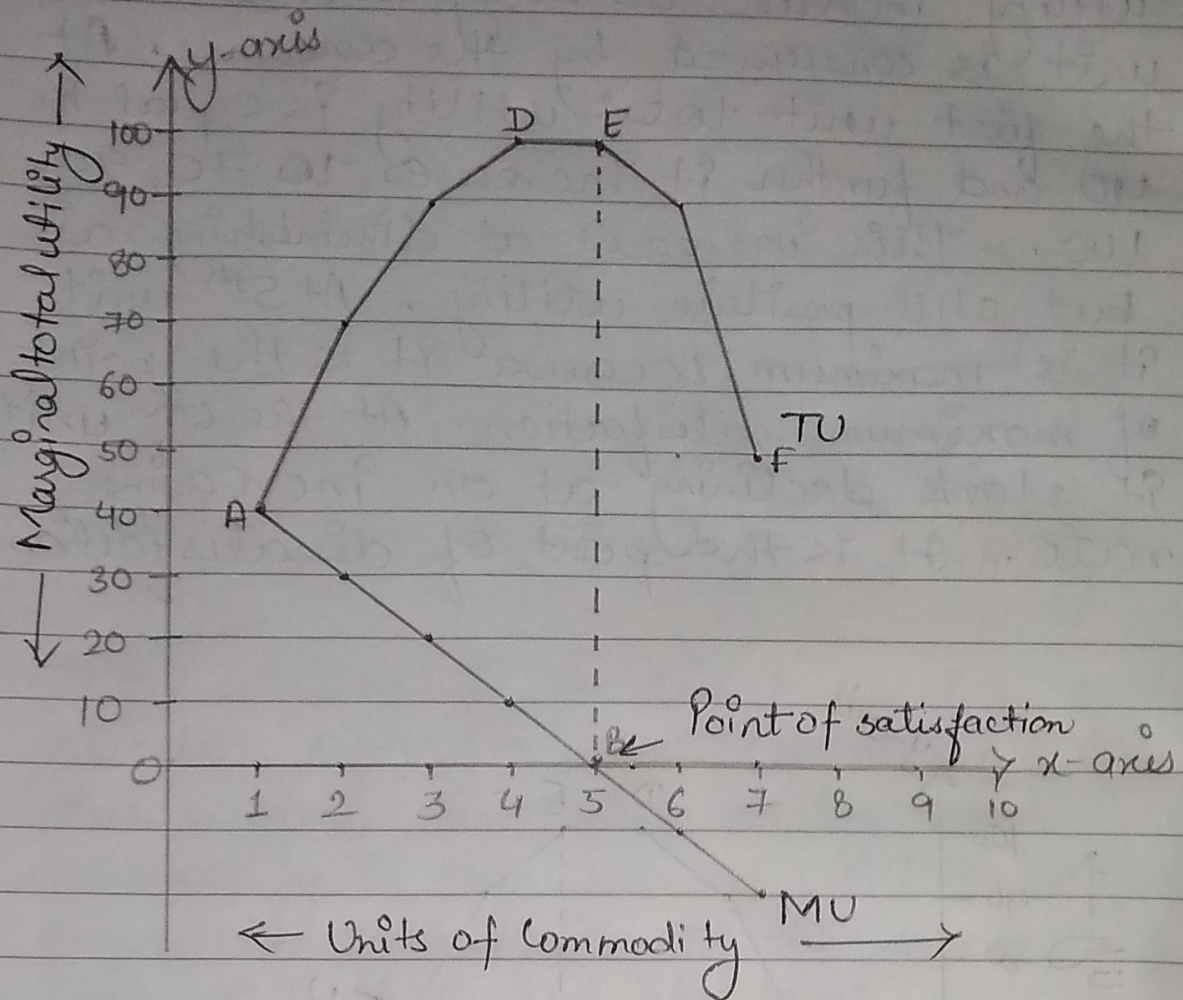 y-axis
Marginal total utility
100
90
80
70
60
50
40
30
20
10
0
D E
A
TU
F
B
Point of satisfaction
x-axis
1 2 3 4 5 6 7 8 9 10
MU
Units of Commodity